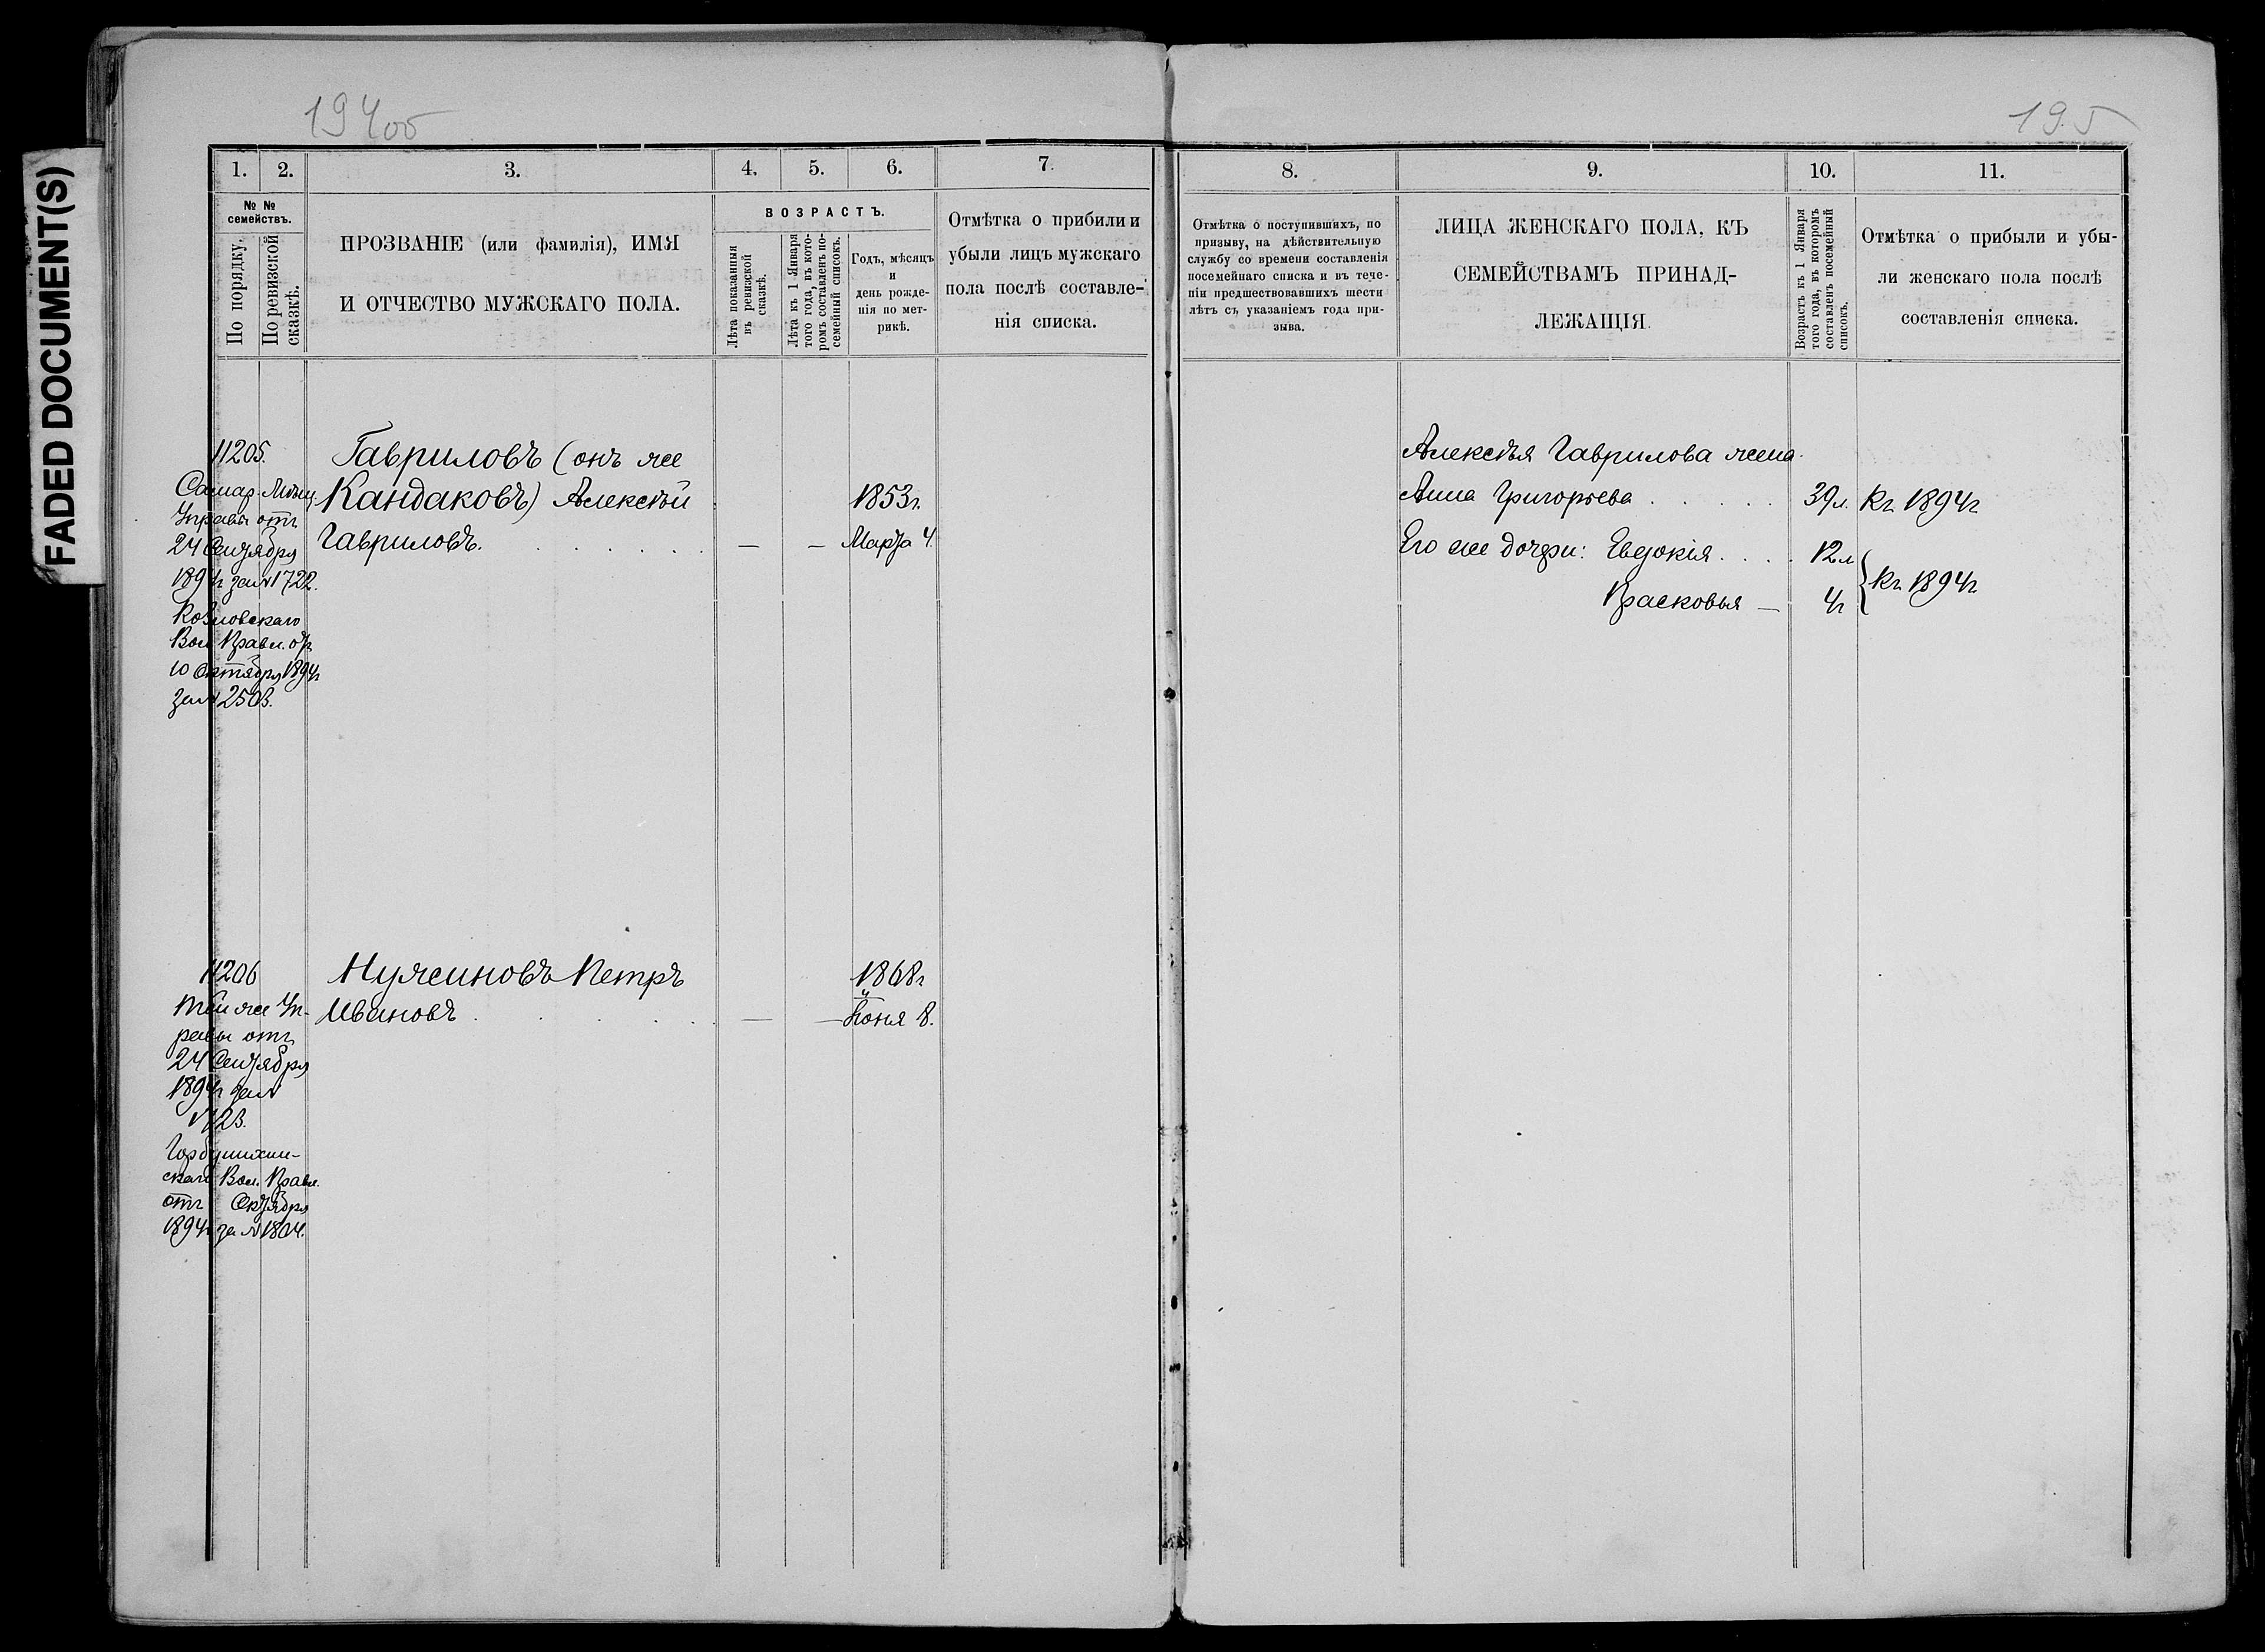 FADED DOCUMENT(S)
194об
195
1. 2. 3. 4. 5. 6. 7.
№ № семействъ.
По порядку.
По ревизской сказкѣ.
ПРОЗВАНІЕ (или фамилія), ИМЯ
И ОТЧЕСТВО МУЖСКАГО ПОЛА.
ВОЗРАСТЪ.
Лѣта показанныя
въ ревизской
сказкѣ.
Лѣта къ 1 Января
того года, въ кото-
ромъ составленъ по-
семейный списокъ.
Годъ, мѣсяцъ
и
день рожде-
нія по мет-
рикѣ.
Отмѣтка о прибили и
убыли лицъ мужскаго
пола послѣ составле-
нія списка.
11205.
Самар. Мѣщ.
Управы отъ
24 Сентября
1894г за № 1722.
Козловскаго
Вол. Правл. отъ
10 Октября 1894г
за № 2503.
Гавриловъ (онъ же
Кандаковъ) Алексѣй
Гавриловъ. — —
1853г.
Марта 4.
11206
Той же Уп-
равы отъ
24 Сентября
1894г за №
1723.
скаго Вол. Правл.
отъ Октября
1894г за № 1804.
Нужиновъ Петръ
Ивановъ — —
1868г
Іюня 8.
8. 9. 10. 11.
Отмѣтка о поступившихъ, по
призыву, на дѣйствительную
службу со времени составленія
посемейнаго списка и въ тече-
ніи предшествовавшихъ шести
лѣтъ съ указаніемъ года при-
зыва.
ЛИЦА ЖЕНСКАГО ПОЛА, КЪ
СЕМЕЙСТВАМЪ ПРИНАД-
ЛЕЖАЩІЯ.
Возрастъ къ 1 Января
того года, въ которомъ
составленъ посемейный
списокъ.
Отмѣтка о прибыли и убы-
ли женскаго пола послѣ
составленія списка.
Алексѣя Гаврилова жена
Анна Григорьева . . . . . 39л. Къ 1894г
Его же дочери: Евдокія . . . . 12л
Прасковья — 4г
Къ 1894г